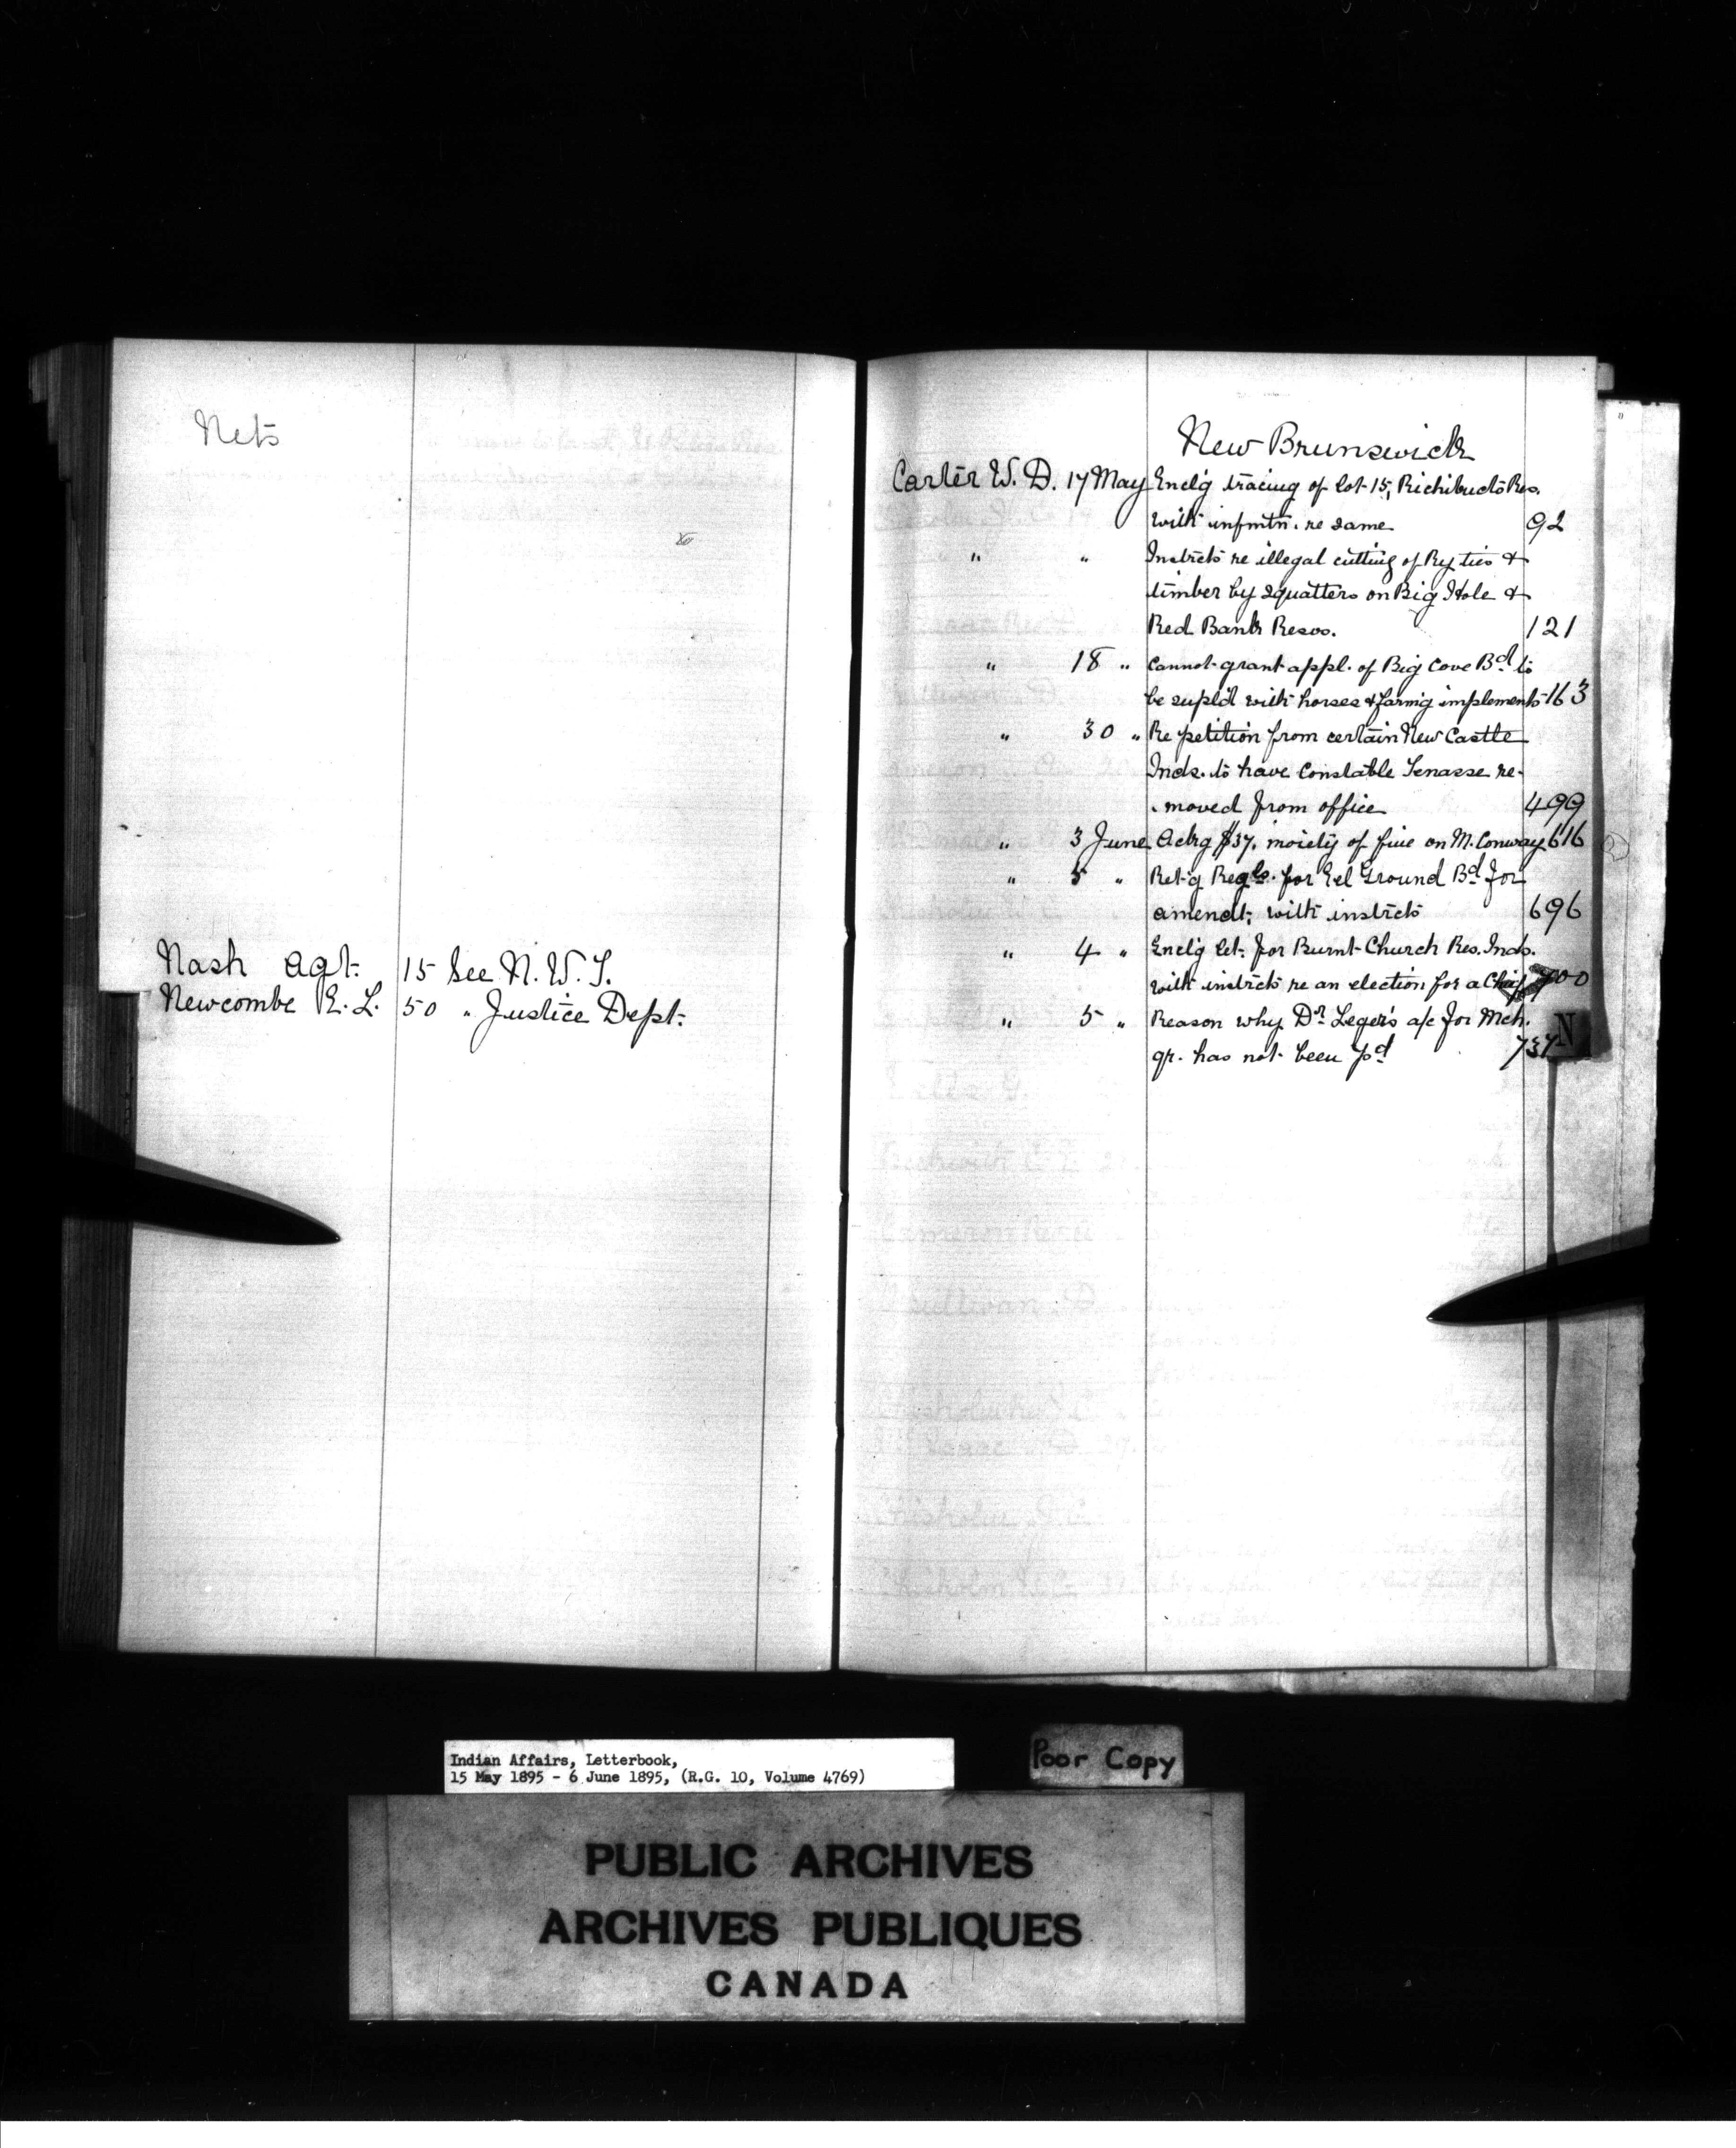 Nets
Nash Agt. 15 See N. W. T.
Newcombe E. L. 50 " Justice Dept.
New Brunswick
Carter W. D. 17 May Encl'g tracing of lot 15, Richibucto Res.
with infmtn. re same 92
" " Instrcts re illegal cutting of Ry ties &
timber by squatters on Big Hole &
Red Bank Resvs. 121
" 18 " Cannot grant appl. of Big Cove Bd. to
be supl'd with horses & farm'g implements 163
" 30 " Re petition from certain New Castle
Inds. to have Constable Tenasse re-
moved from office 499
" 3 June Ackg $37. moiety of fine on M. Conway 616
" 5 " Ret'g Regls. for Eel Ground Bd. for
amendt; with instrcts 696
" 4 " Encl'g let. for Burnt Church Res. Inds.
with instrcts re an election for a Chief 700
" 5 " Reason why Dr. Leger's a/c for Mch.
qr. has not been pd 737
N
Indian Affairs, Letterbook,
15 May 1895 - 6 June 1895, (R.G. 10, Volume 4769)
Poor Copy
PUBLIC ARCHIVES
ARCHIVES PUBLIQUES
CANADA